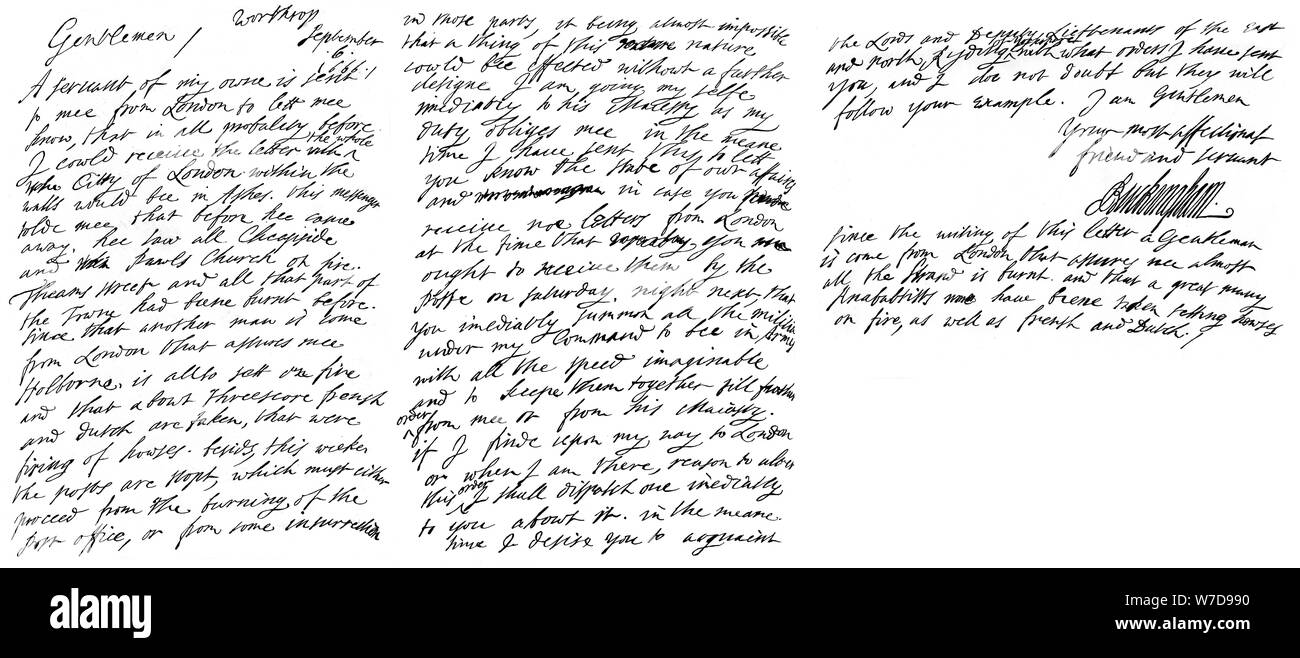 Worthrop
September
6. 66.
Gentlemen /
A servant of my owne is sent
to mee from London to lett mee
know, that in all probality before
I cowld receive the letter the whole
Citty of London within the
walls would bee in Ashes. this messenger
tolde mee that before hee came
away. hee saw all Cheapside
and Pawls Church on fire.
Theams street and all that part of
the Towne had beene burnt before.
since that another man is come
from London that assures mee
Holborne is allso sett one fire
and that about threescore french
and dutch are taken, that were
firing of howses. besids, this weekes
the posts are stopt, which must either
proceed from the burning of the
post office, or from some insurrection
in those parts, it being almost impossible
that a thing of this nature
cowld bee effected without a further
designe. I am going my selfe
imediatly to his Majesty as my
duty obliges mee, in the meane
time I have sent this to lett
you know the state of our affairs
and in case you
receive noe letters from London
at the time that you
ought to receive them by the
poste on saturday night next, that
you imediatly summon all the militia
under my Command to bee in Arms
with all the speed imaginable
and to keepe them together till further
order from mee or from his Majesty.
if I finde upon my way to London
or when I am there, reason to alter
this order I shall dispatch one imediatly
to you about it. in the meane
time I desire you to acquaint
the Lords and Deputy Lieftenants of the East
and north Ridings with what orders I have sent
you, and I doe not doubt but they will
follow your Example. I am Gentlemen
Your most affectionat
friend and servant
Buckingham.
since the writing of this letter a Gentleman
is come from London that assures mee almost
all the strand is burnt. and that a great many
Anababtists have beene taken setting howses
on fire, as well as french and Dutch /
alamy
Image ID: W7D990
www.alamy.com